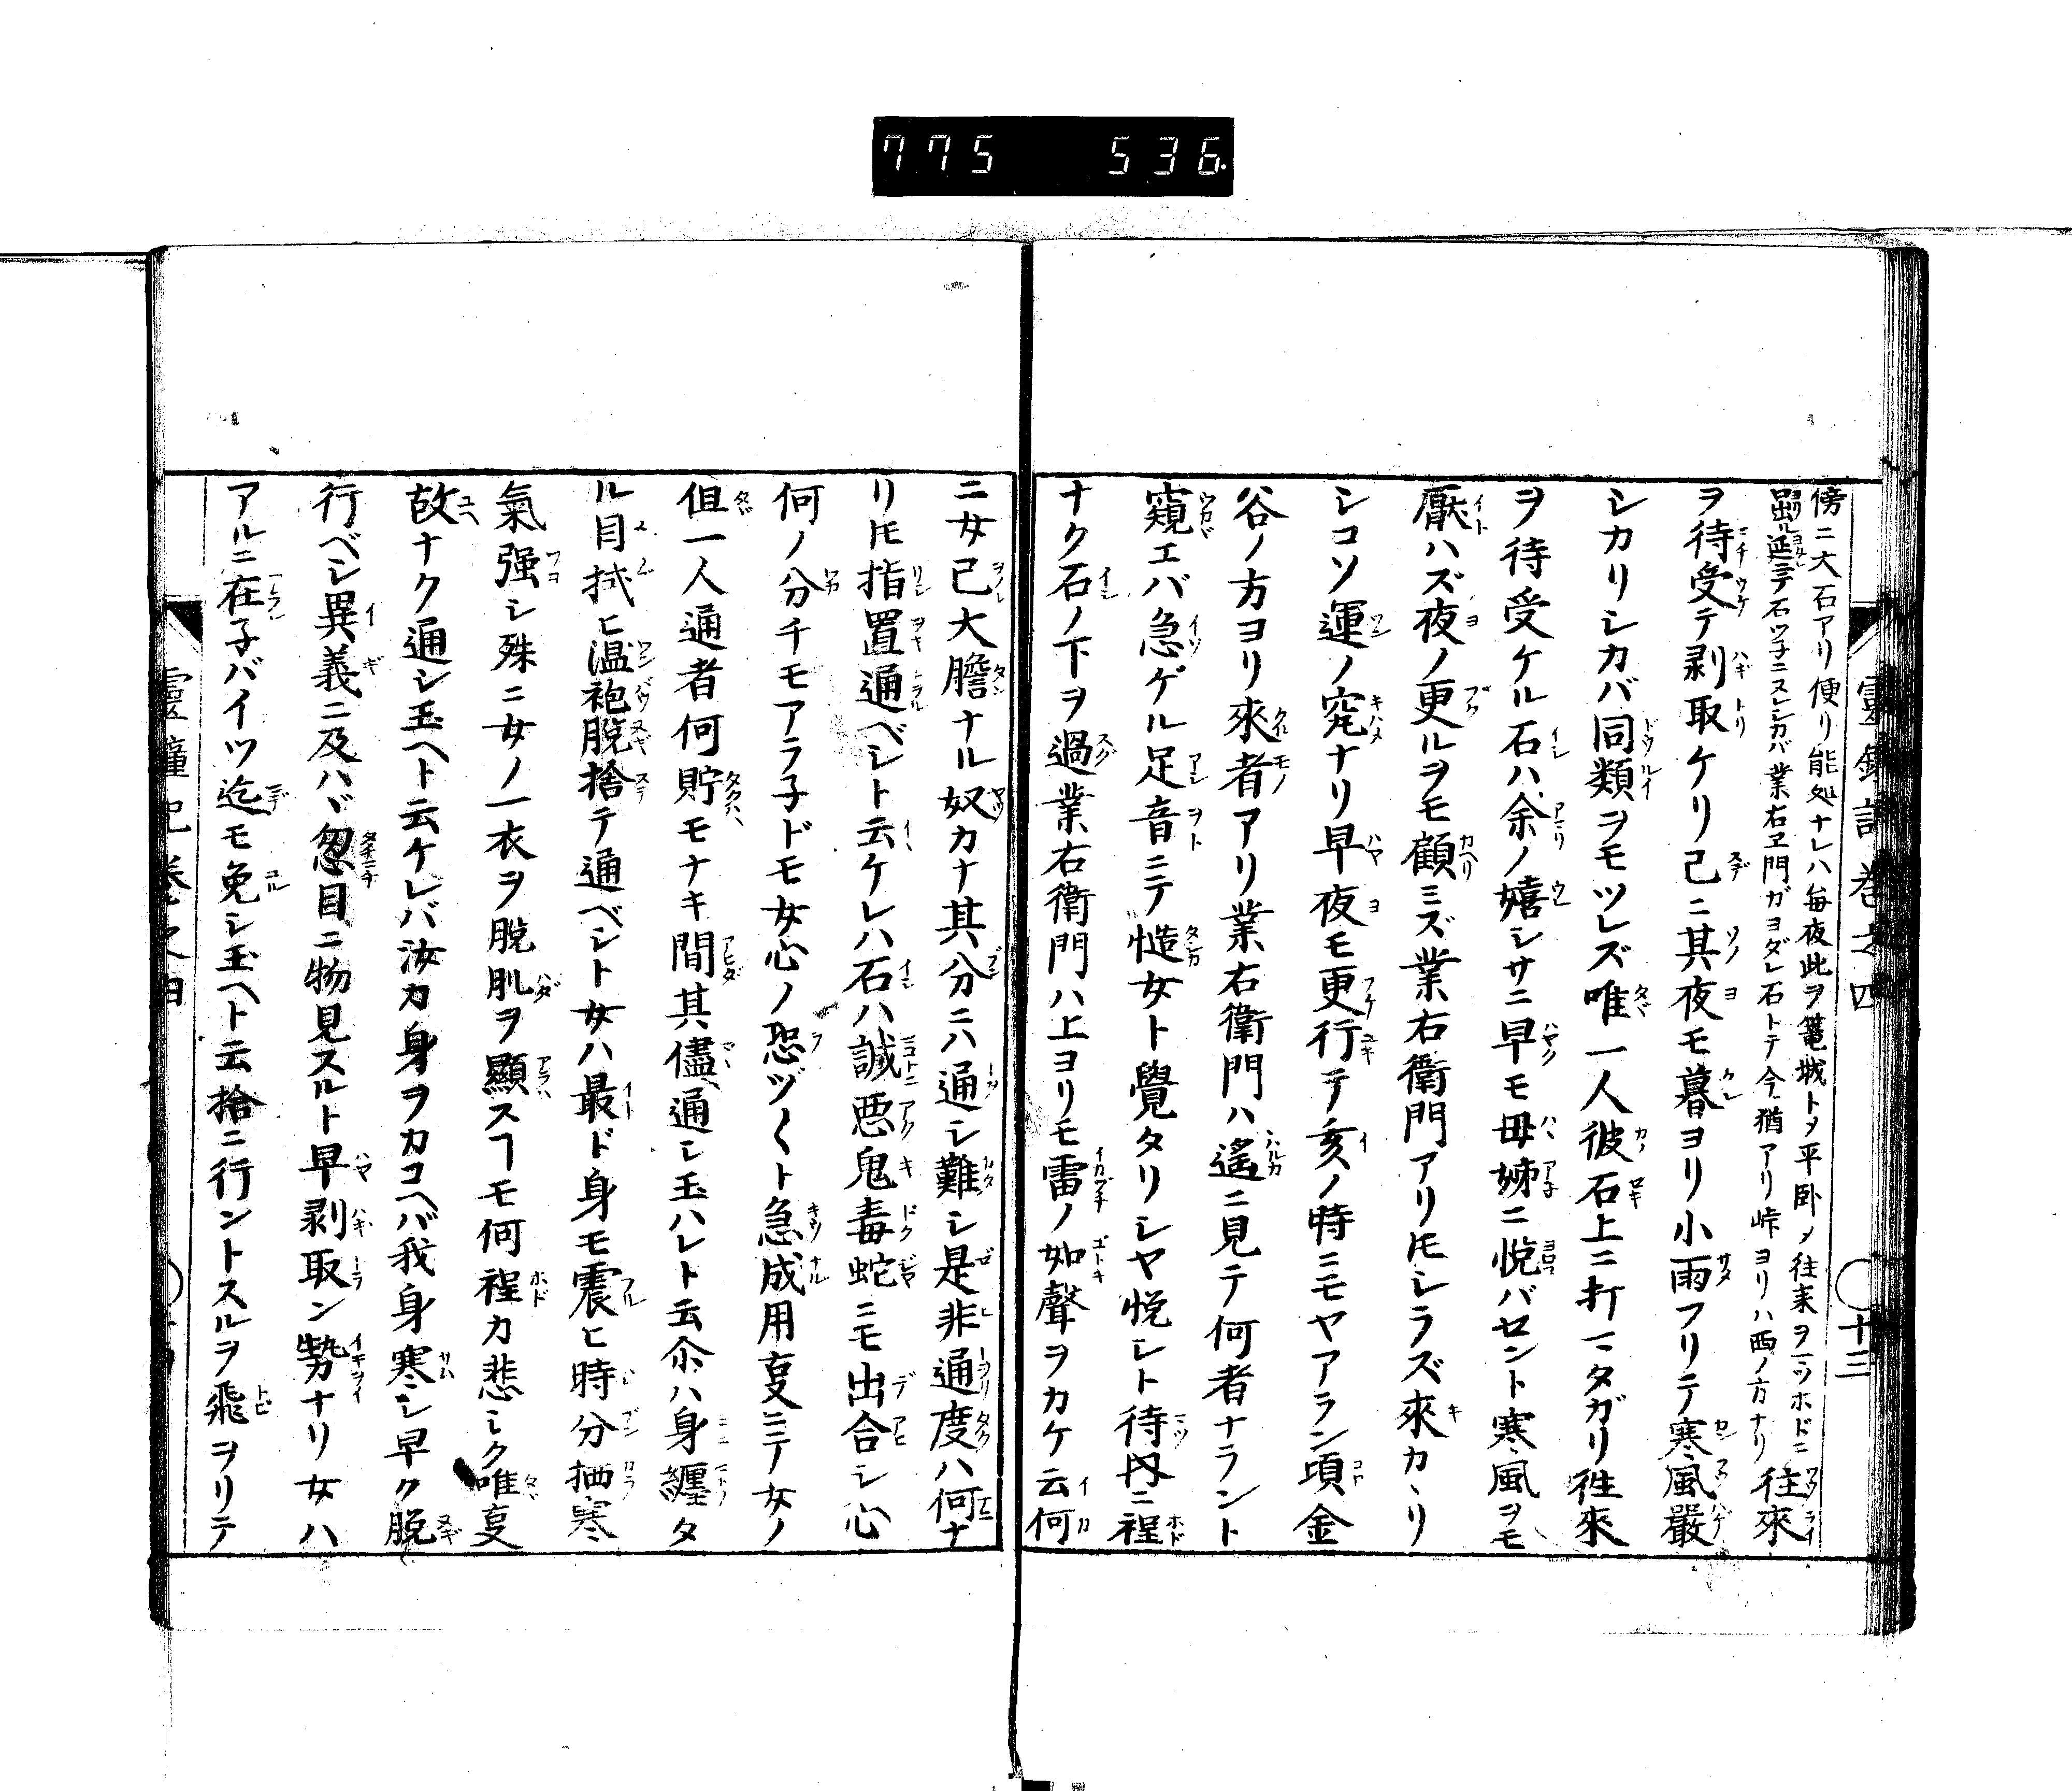 775 536
傍ニ大石アリ便リ能処ナレハ毎夜此ヲ篭城トメ平臥ノ往来ヲ一ツホドニ
延テ石ツ子ニスレシカバ業右ヱ門ガヨダレ石トテ今猶アリ峠ヨリハ西ノ方ナリ
往來
ヲ待受テ剥取ケリ己ニ其夜モ暮ヨリ小雨フリテ寒風嚴
シカリシカバ同類ヲモツレズ唯一人彼石上ニ打マタガリ徃來
ヲ待受ケル石ハ余ノ嬉シサニ早モ母姉ニ悦バセント寒風ヲモ
厭ハズ夜ノ更ルヲモ顧ミズ業右衛門アリ𪜈シラズ來カヽリ
シコソ運ノ究ナリ早夜モ更行テ亥ノ時ニモヤアラン項金
谷ノ方ヨリ來者アリ業右衛門ハ遙ニ見テ何者ナラント
窺エバ急ゲル足音ニテ慥女ト覺タリシヤ悦レト待ニ程
ナク石ノ下ヲ過業右衛門ハ上ヨリモ雷ノ如聲ヲカケ云何
ニ女己大膽ナル奴カナ其分ニハ通シ難シ是非通度ハ何ナ
リ𪜈指置通ベシト云ケレハ石ハ誠悪鬼毒蛇ニモ出合シ心
何ノ分チモアラ子ドモ女心ノ恐ヅ〱ト急成用叓ニテ女ノ
但一人通者何貯モナキ間其儘通シ玉ハレト云尒ハ身纏タ
ル目拭ヒ温袍脱捨テ通ベシト女ハ最ド身モ震ヒ時分柄寒
氣强シ殊ニ女ノ一衣ヲ脱肌ヲ顯スヿモ何程カ悲シク唯叓
故ナク通シ玉ヘト云ケレバ汝カ身ヲカコヘバ我身寒シ早ク脱
行ベシ異義ニ及ハヾ忽目ニ物見スルト早剥取ン勢ナリ女ハ
アルニ在子バイツ迄モ免シ玉ヘト云捨ニ行ントスルヲ飛ヲリテ